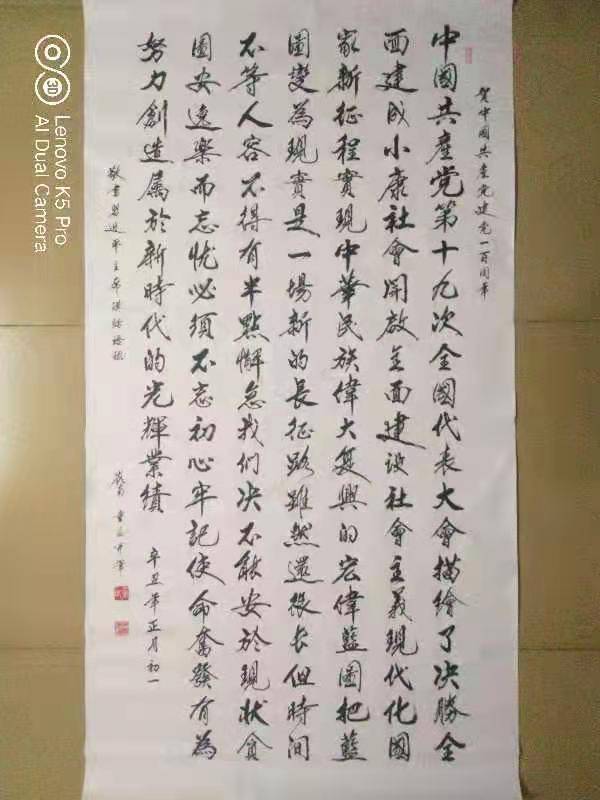 賀中國共產党建党一百周年
中國共產党第十九次全國代表大會描繪了决勝全
面建成小康社會開啟全面建设社會主義現代化國
家新征程實現中華民族偉大复興的宏偉藍圖把藍
圖變為現實是一場新的長征路雖然還很长但時間
不等人容不得有半點懈怠我们决不能安於現狀貪
圖安逸樂而忘忧必须不忘初心牢記使命奮發有為
努力創造属於新時代的光輝業績
辛丑年正月初一
敬書習近平主席
3D
Lenovo K5 Pro
AI Dual Camera